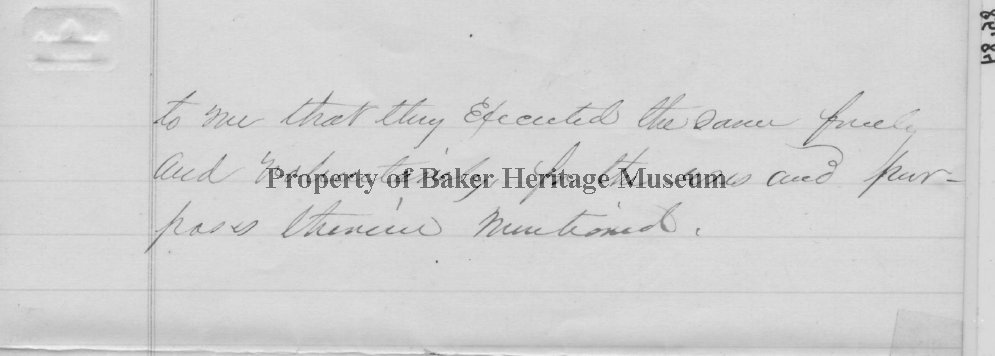 to me that they Executed the same freely
and voluntarily for the uses and pur-
Property of Baker Heritage Museum
poses therein mentioned.